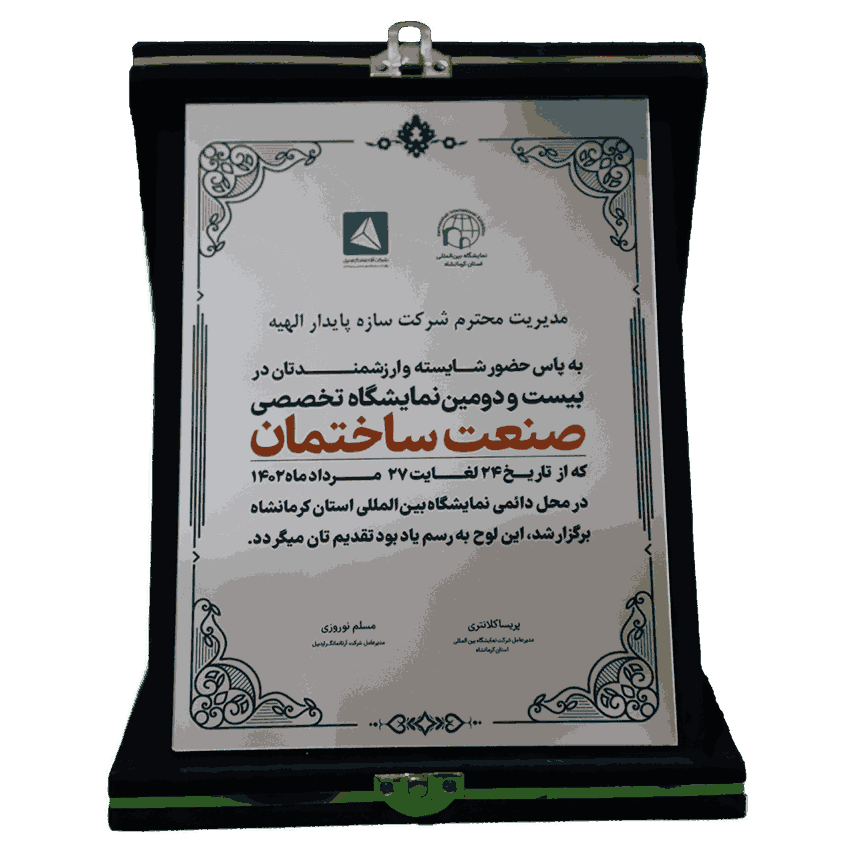 نمایشگاه بین‌المللی
استان کرمانشاه
مدیریت محترم شرکت سازه پایدار الهیه
به پاس حضور شایسته و ارزشمندتان در
بیست و دومین نمایشگاه تخصصی
صنعت ساختمان
که از تاریخ ۲۴ لغایت ۲۷ مردادماه ۱۴۰۲
در محل دائمی نمایشگاه بین المللی استان کرمانشاه
برگزار شد، این لوح به رسم یادبود تقدیم تان میگردد.
پریسا کلانتری
مدیرعامل شرکت نمایشگاه بین المللی
استان کرمانشاه
مسلم نوروزی